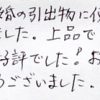 婚の引出物に使
ました。上品で
好評でした。お
うございました。